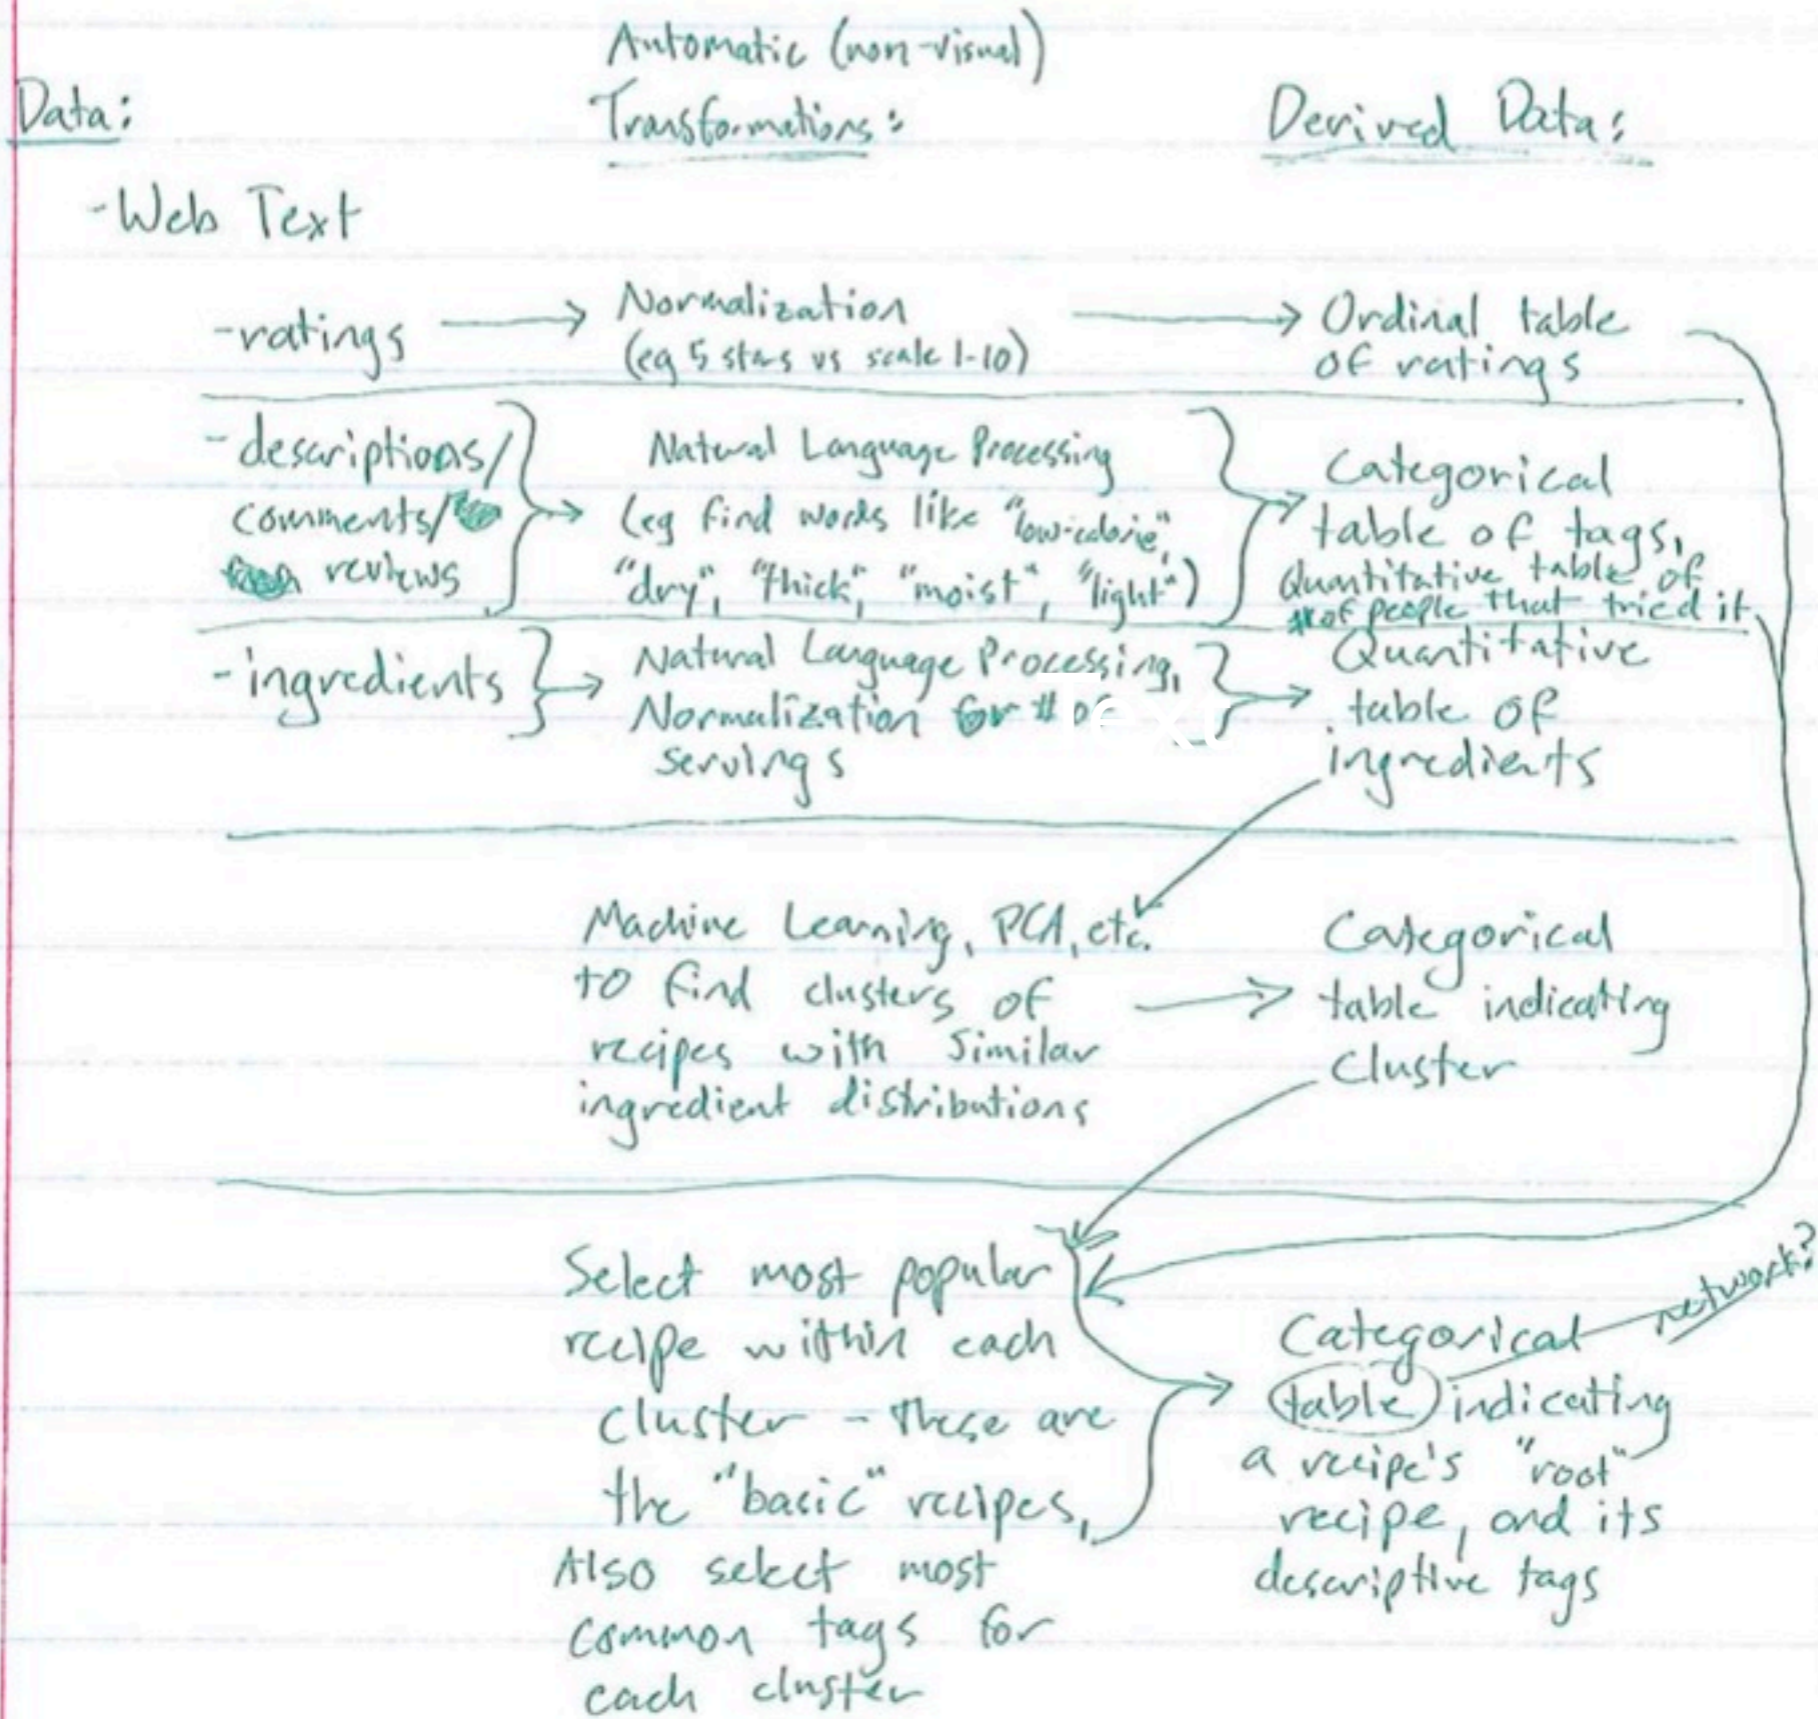 Automatic (non-visual)
Data:
Transformations:
Derived Data:
-Web Text
-ratings
Normalization
(eg 5 stars vs scale 1-10)
Ordinal table
of ratings
-descriptions/
comments/
reviews
Natural Language Processing
(eg find words like "low-calorie",
"dry", "thick", "moist", "light")
Categorical
table of tags,
Quantitative table of
# of people that tried it
-ingredients
Natural Language Processing,
Normalization for # of
servings
Text
Quantitative
table of
ingredients
Machine Learning, PCA, etc.
to find clusters of
recipes with similar
ingredient distributions
Categorical
table indicating
cluster
Select most popular
recipe within each
cluster - these are
the "basic" recipes,
Also select most
common tags for
each cluster
network?
Categorical
table indicating
a recipe's "root"
recipe, and its
descriptive tags